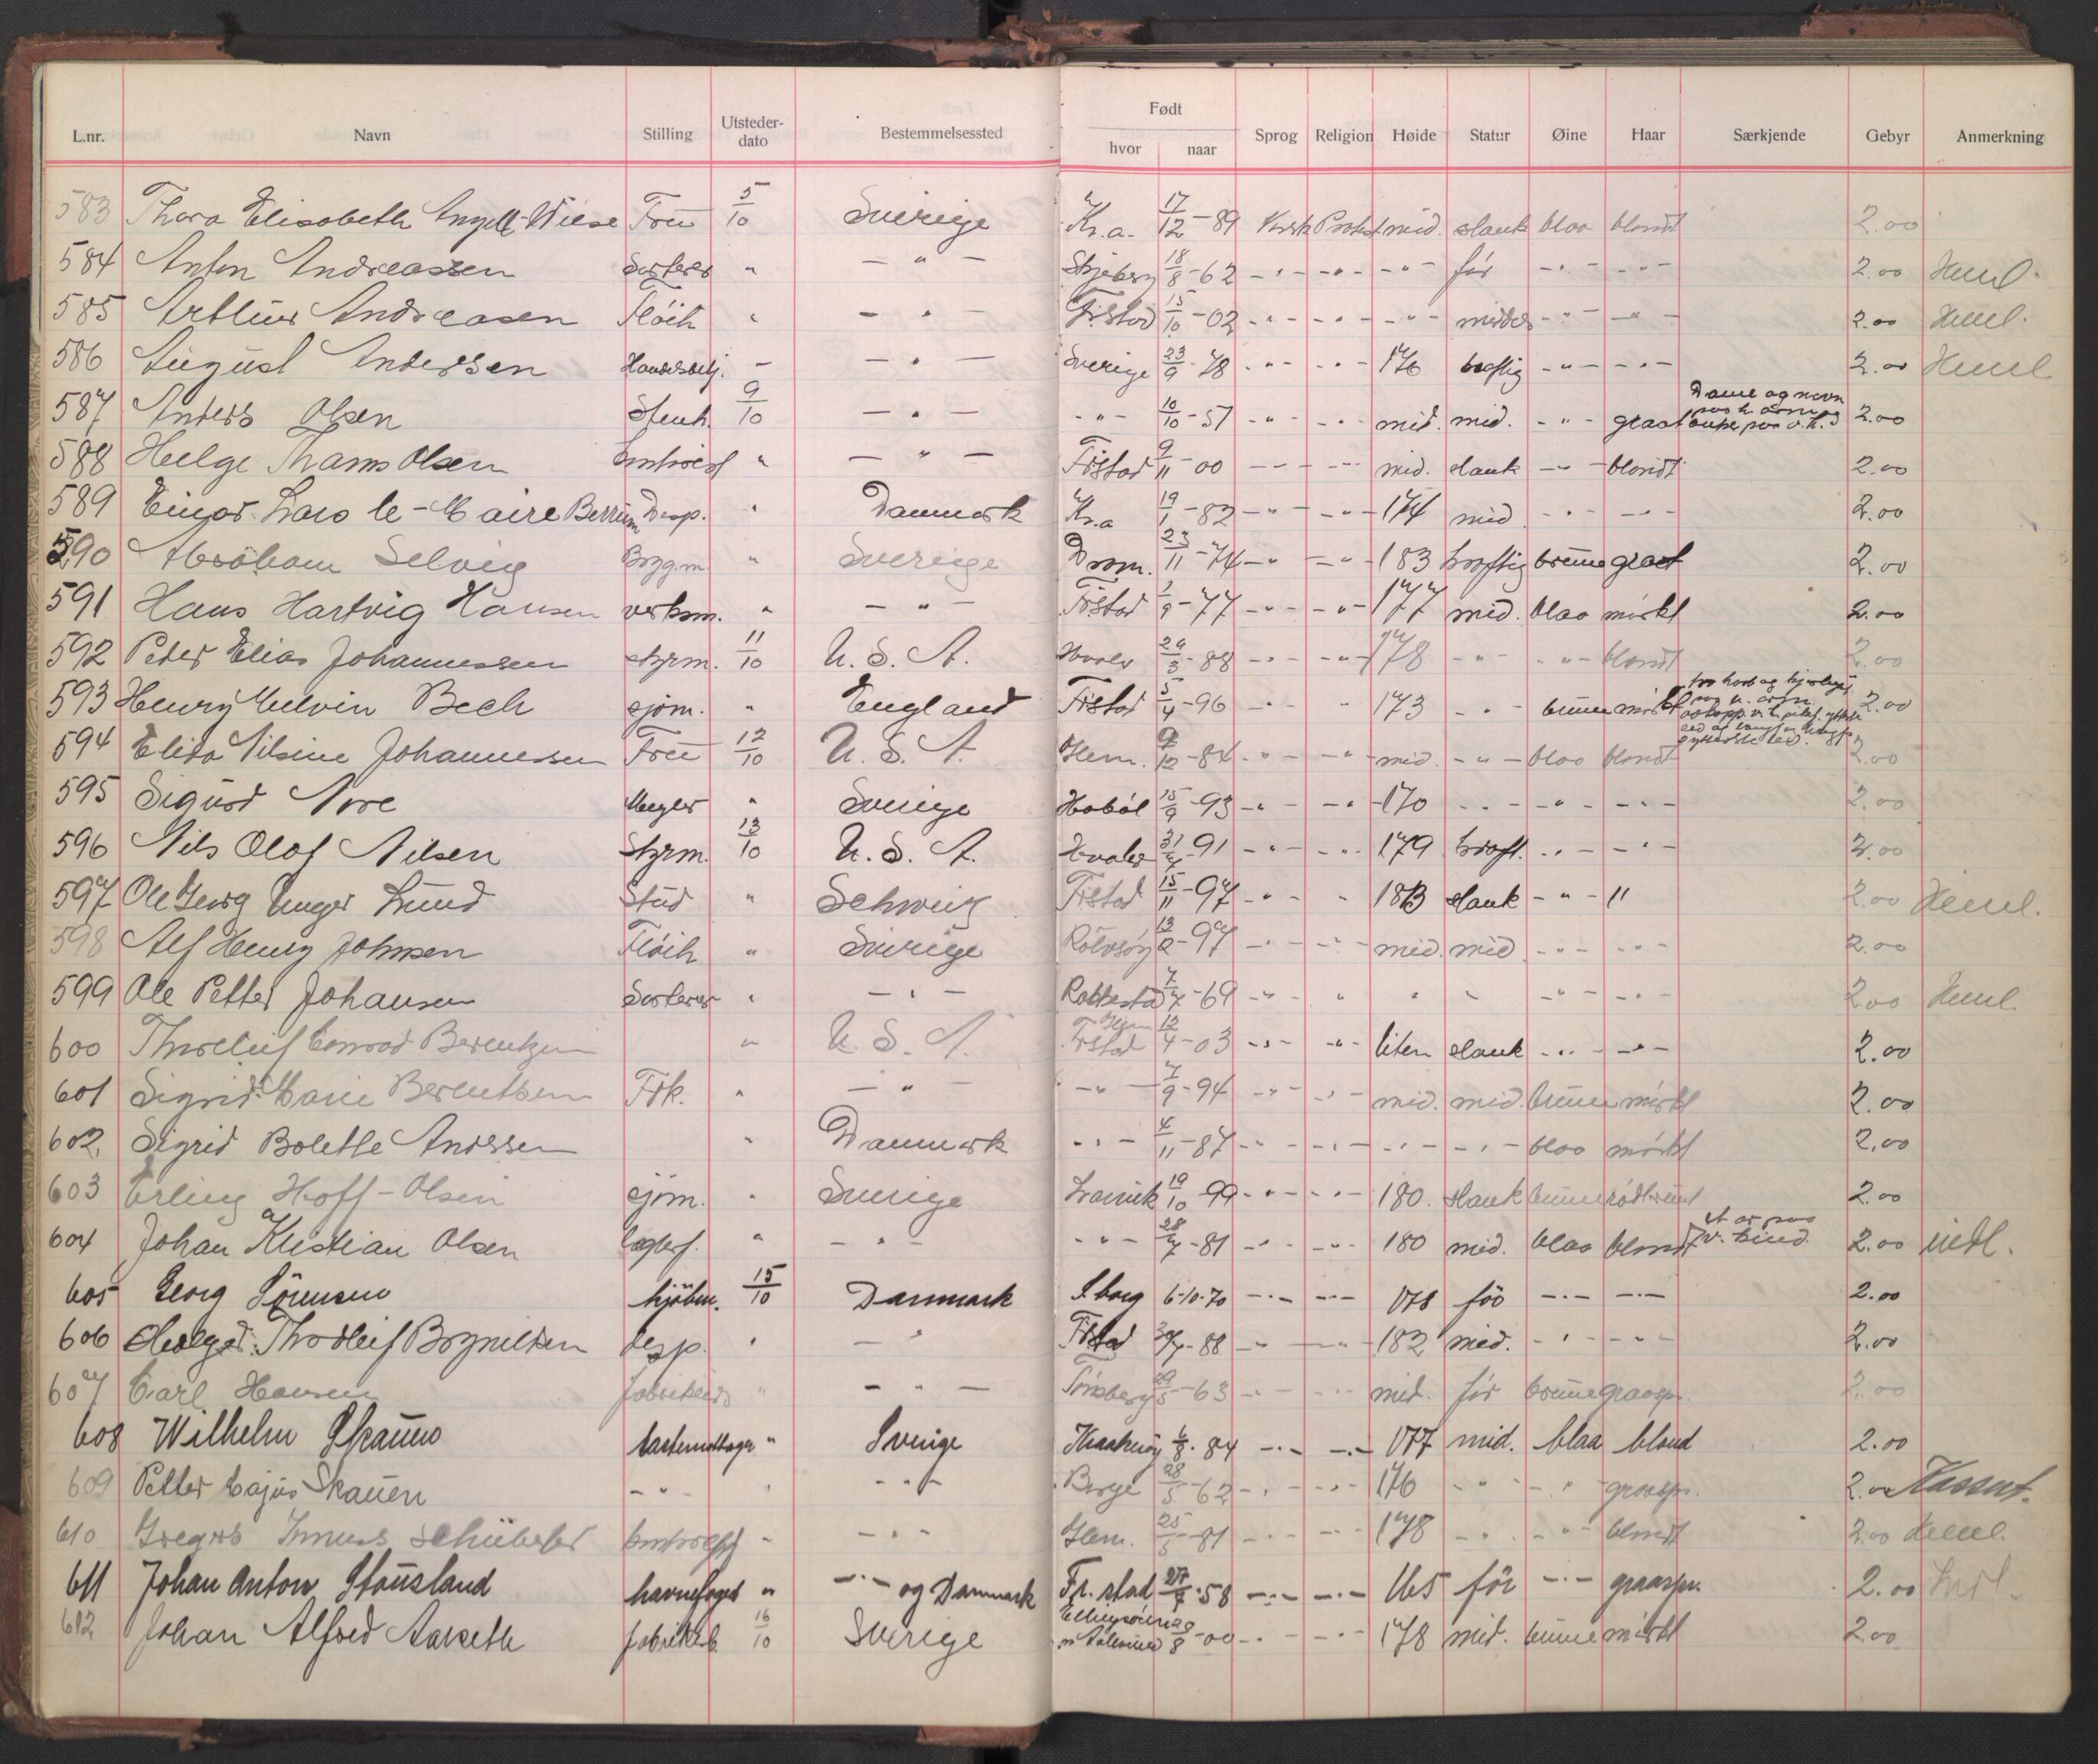 Født
L.nr. Navn Stilling Utsteder-dato Bestemmelsessted hvor naar Sprog Religion Høide Statur Øine Haar Særkjende Gebyr Anmerkning
583 Thora Elisabeth Angell-Wiese Fru 5/10 Sverige Kr.a. 17/12-89 Norsk Protest mid. slank blaa blondt 2.00
584 Anton Andreassen Sorterer " — " — Skjeberg 18/8-62 - " - - " - - " - før - " - - " - 2.00 Henl.
585 Arthur Andreasen Fløith " — " — F.stad 15/10-02 - " - - " - - " - middels - " - - " - 2.00 Henl.
586 August Andersen Handelsbetj. - — " — Sverige 23/9-78 - " - - " - 176 kraftig - " - - " - 2.00 Henl.
587 Anders Olsen Stenh. 9/10 — " — - " - 10/10-57 - " - - " - mid. mid. - " - graat Dame og navn paa h. arm og paa v. h. 2.00
588 Helge Thams Olsen Kontorist " — " — F.stad 9/11-00 - " - - " - mid. slank - " - blondt 2.00
589 Einar Lars le-Maire Berrum Desp. " Danmark Kr.a 19/1-82 - " - - " - 174 mid. - " - - " - 2.00
590 Abraham Selvig Brygm. " Sverige Dram. 23/11-74 - " - - " - 183 kraftig brune graat 2.00
591 Hans Hartvig Hansen verksm. " — " — F.stad 2/9-77 - " - - " - 177 mid. blaa mørkt 2.00
592 Peder Elias Johannessen styrm. 11/10 U.S.A. Hvaler 29/3-88 - " - - " - 178 - " - - " - blondt 2.00
593 Henry Melvin Bech sjøm. " England F.stad 5/4-96 - " - - " - 173 - " - brune mørkt 2.00
594 Elida Nilsine Johannessen Fru 12/10 U.S.A. Glem. 9/12-84 - " - - " - mid. - " - blaa blondt 2.00
595 Sigurd Nore Megler " Sverige Hobøl 15/9-93 - " - - " - 170 - " - - " - - " - 2.00
596 Nils Olaf Nilsen Styrm. 13/10 U.S.A. Hvaler 31/7-91 - " - - " - 179 kraft. - " - - " - 2.00
597 Ole Georg Unger Lund Stud " Schweiz F.stad 15/11-97 - " - " 183 slank - " - " 2.00 Henl.
598 Alf Henry Johnsen Fløith " Sverige Rolvsøy 13/2-97 - " - - " - mid. mid - " - - " - 2.00
599 Ole Petter Johansen Sorterer " — " — Rakkestad 7/7-69 - " - " " " - " - - " - 2.00 Henl.
600 Thorleif Conrad Berentzen " U.S.A. F.stad Glem 12/4-03 - " - - " - liten slank - " - - " - 2.00
601 Sigrid Marie Berentsen Frk. " — " — - " - 7/9-94 - " - - " - mid. mid. brune mørkt 2.00
602. Sigrid Bolette Andersen " Danmark - " - 4/11-87 - " - - " - - " - - " - blaa mørkt 2.00
603 Erling Hoff-Olsen sjøm. " Sverige Larvik 19/10-99 - " - - " - 180. slank brune rødbrunt 2.00
604 Johan Kristian Olsen lagerf. " - " - - " - 28/7-81 - " - - " - 180 mid. blaa blondt et ar paa v. kind. 2.00 indl.
605 Georg Sørensen kjøbm. 15/10 Danmark S.borg 6-10-70 - " - - " - 178 før - " - - " - 2.00
606 Holger Thorleif Brynildsen desp. " — " F.stad 30/7-88 - " - - " - 182 mid. - " - - " - 2.00
607 Carl Hansen fabrikeier " - " - Tønsberg 29/5-63 - " - - " - mid. før brune graaspr. 2.00
608 Wilhelm Skauno lastemottager " Sverige Kraakerøy 6/8-84 - " - - " - 177 mid. blaa blond 2.00
609 Petter Cajus Skauen - " - " - " - Borge 28/5-62 - " - - " - 176 - " - - " - graaspr. 2.00 Kassert.
610 Gregers Immers Schübeler kontorchef " - " - Glem. 25/5-81 - " - - " - 178 - " - - " - blondt 2.00 Henl.
611 Johan Anton Stousland havnefoged " - " - og Danmark Fr.stad 27/7-58 - " - - " - 165 før - " - graaspr. 2.00 Indl.
612 Johan Alfred Aarseth fabrikarb. 16/10 Sverige Ellingsøen n Aalesund 29/8-00 - " - - " - 178 mid. brune mørkt 2.00